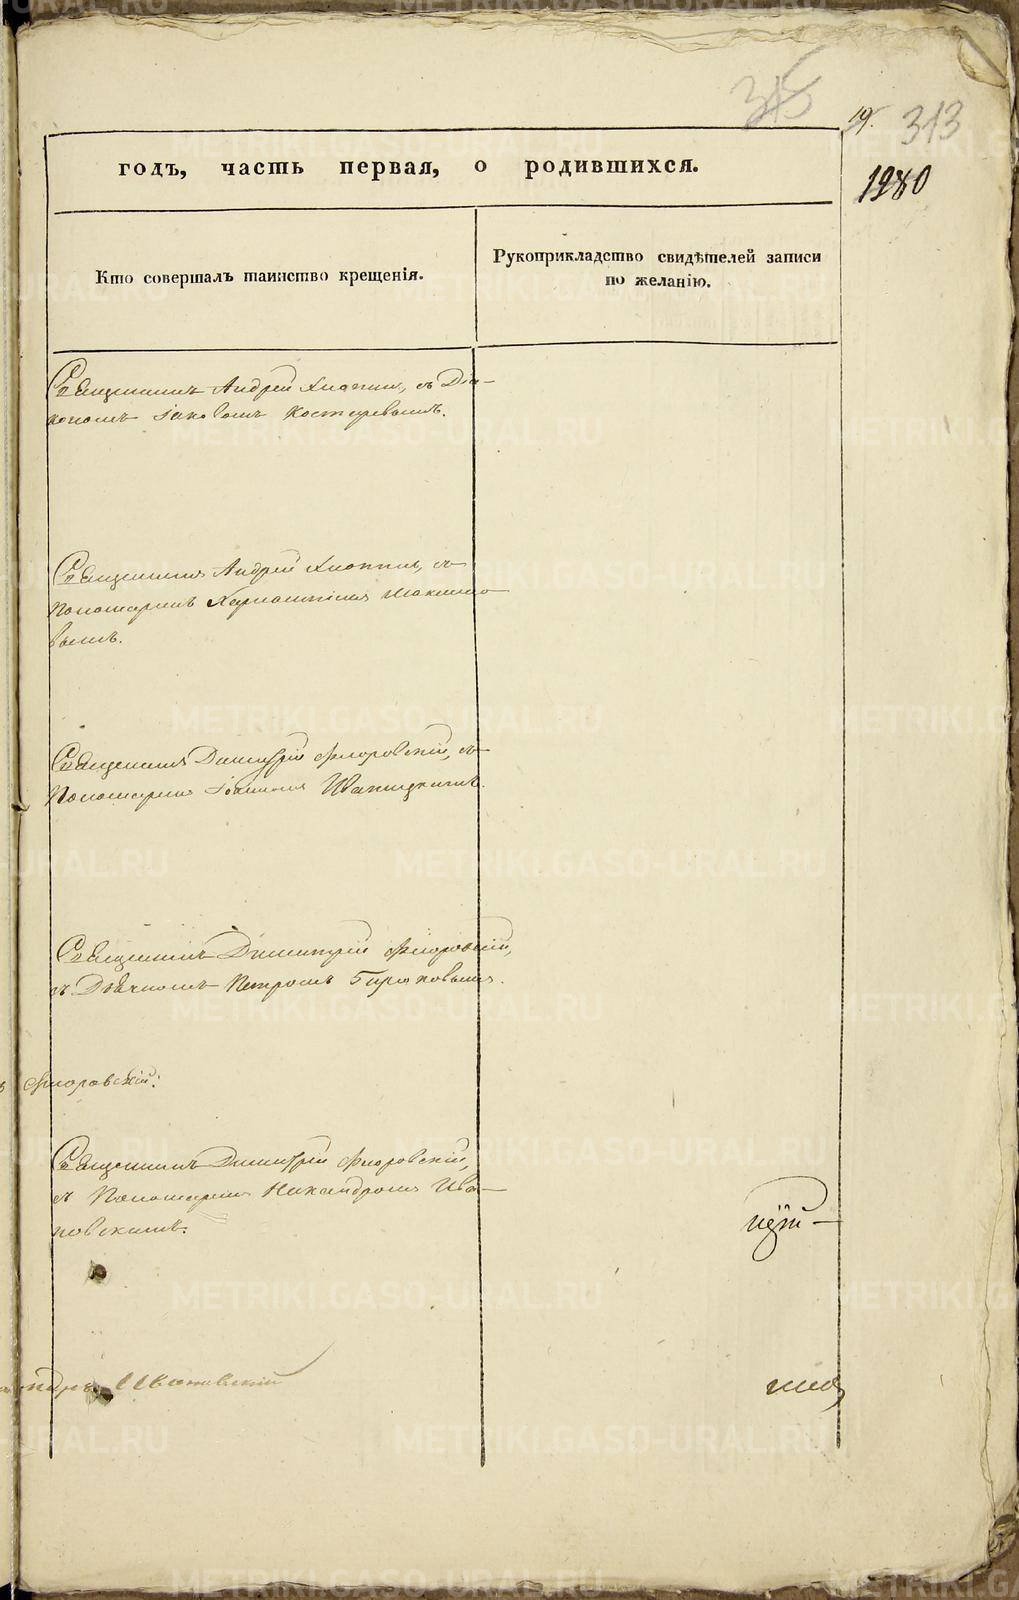 315
19. 313
1280
годъ, часть первая, о родившихся.
Кто совершалъ таинство крещенія.
Рукоприкладство свидѣтелей записи
по желанію.
Священникъ Андрей Хлопинъ, съ Діа-
кономъ Іаковомъ Костаревымъ.
Священникъ Андрей Хлопинъ, съ
Пономаремъ Харлампіемъ Максимо
вымъ.
Священникъ Димитрій Флоровскій, съ
Пономаремъ Іоанномъ
Священникъ Димитрій Флоровскій,
съ Дьячкомъ Петромъ
Флоровскій.
Священникъ Димитрій Флоровскій,
съ Пономаремъ Никандромъ Ива-
новскимъ.
Ивановскій
METRIKI.GASO-URAL.RU